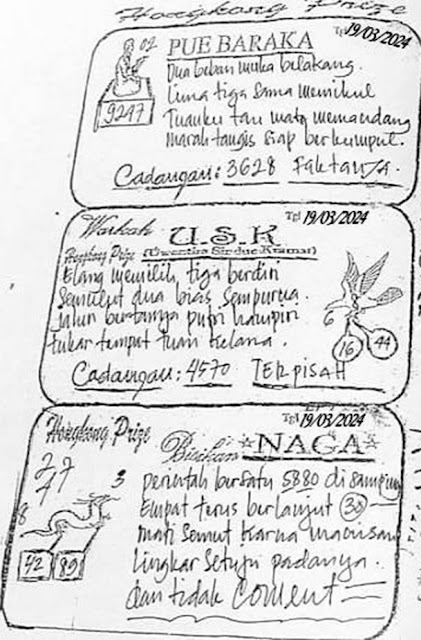 Hongkong Prize
Tgl 19/03/2024
02
PUE BARAKA
9247
Dua beban muka belakang.
Lima tiga sama memikul
Tuanku tau mata memandang
Marah tangis siap berkumpul.
Cadangan: 3628 Faktanya.
Tgl 19/03/2024
Warkah
U.S.K
Hongkong Prize
Elang memilih tiga berdiri
Semulut dua bias sempurna.
Jalur bertanya putri hampiri
tukar tempat tuan kelana.
6
16
44
Cadangan: 4570 TERPISAH
Tgl 19/03/2024
Hongkong Prize
Bisikan NAGA
77
7
3
8
42 89
perintah bersatu 5880 di samping
Empat terus berlanjut 30
mati semut karna manisan
lingkar setuju padanya.
dan tidak Coment